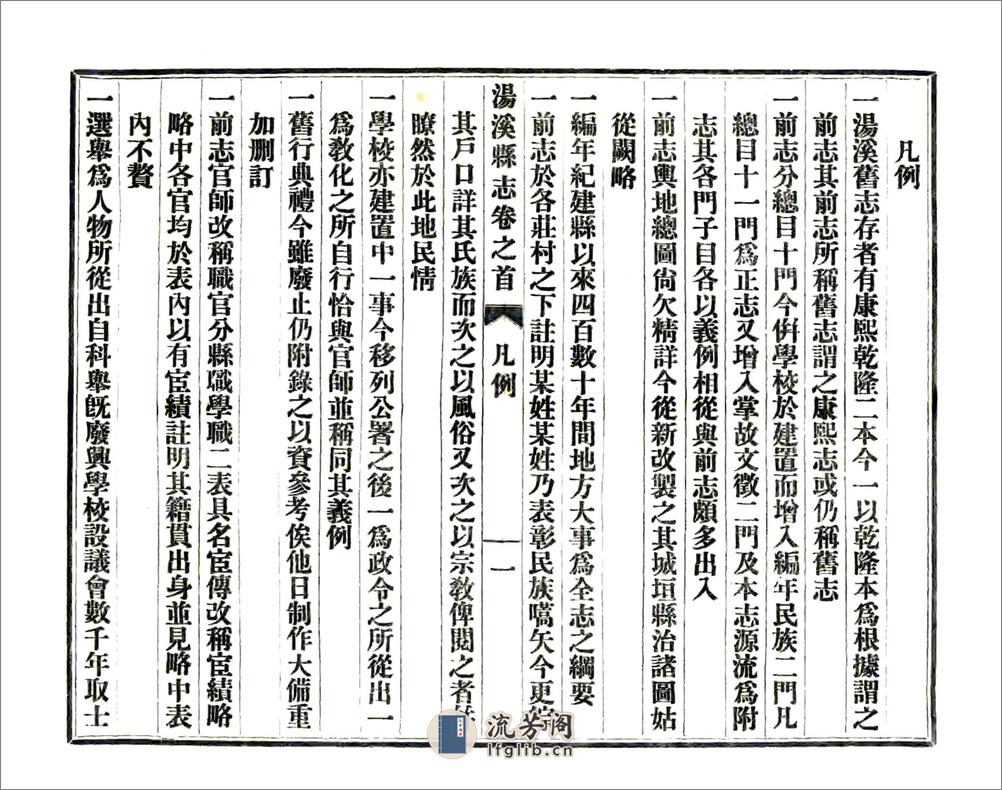 凡例
一湯溪舊志存者有康熙乾隆二本今一以乾隆本爲根據謂之
前志其前志所稱舊志謂之康熙志或仍稱舊志
一前志分總目十門今倂學校於建置而增入編年民族二門凡
總目十一門爲正志又增入掌故文徵二門及本志源流爲附
志其各門子目各以義例相從與前志頗多出入
一前志輿地總圖尙欠精詳今從新改製之其城垣縣治諸圖姑
從闕略
一編年紀建縣以來四百數十年間地方大事爲全志之綱要
一前志於各莊村之下註明某姓某姓乃表彰民族嚆矢今更
湯溪縣志卷之首 凡例 一
其戶口詳其氏族而次之以風俗又次之以宗敎俾閱之者
瞭然於此地民情
一學校亦建置中一事今移列公署之後一爲政令之所從出一
爲敎化之所自行恰與官師並稱同其義例
一舊行典禮今雖廢止仍附錄之以資參考俟他日制作大備重
加刪訂
一前志官師改稱職官分縣職學職二表具名宦傳改稱宦績略
略中各官均於表內以有宦績註明其籍貫出身並見略中表
內不贅
一選舉爲人物所從出自科舉旣廢興學校設議會數千年取士
流芳阁
lfglib.cn